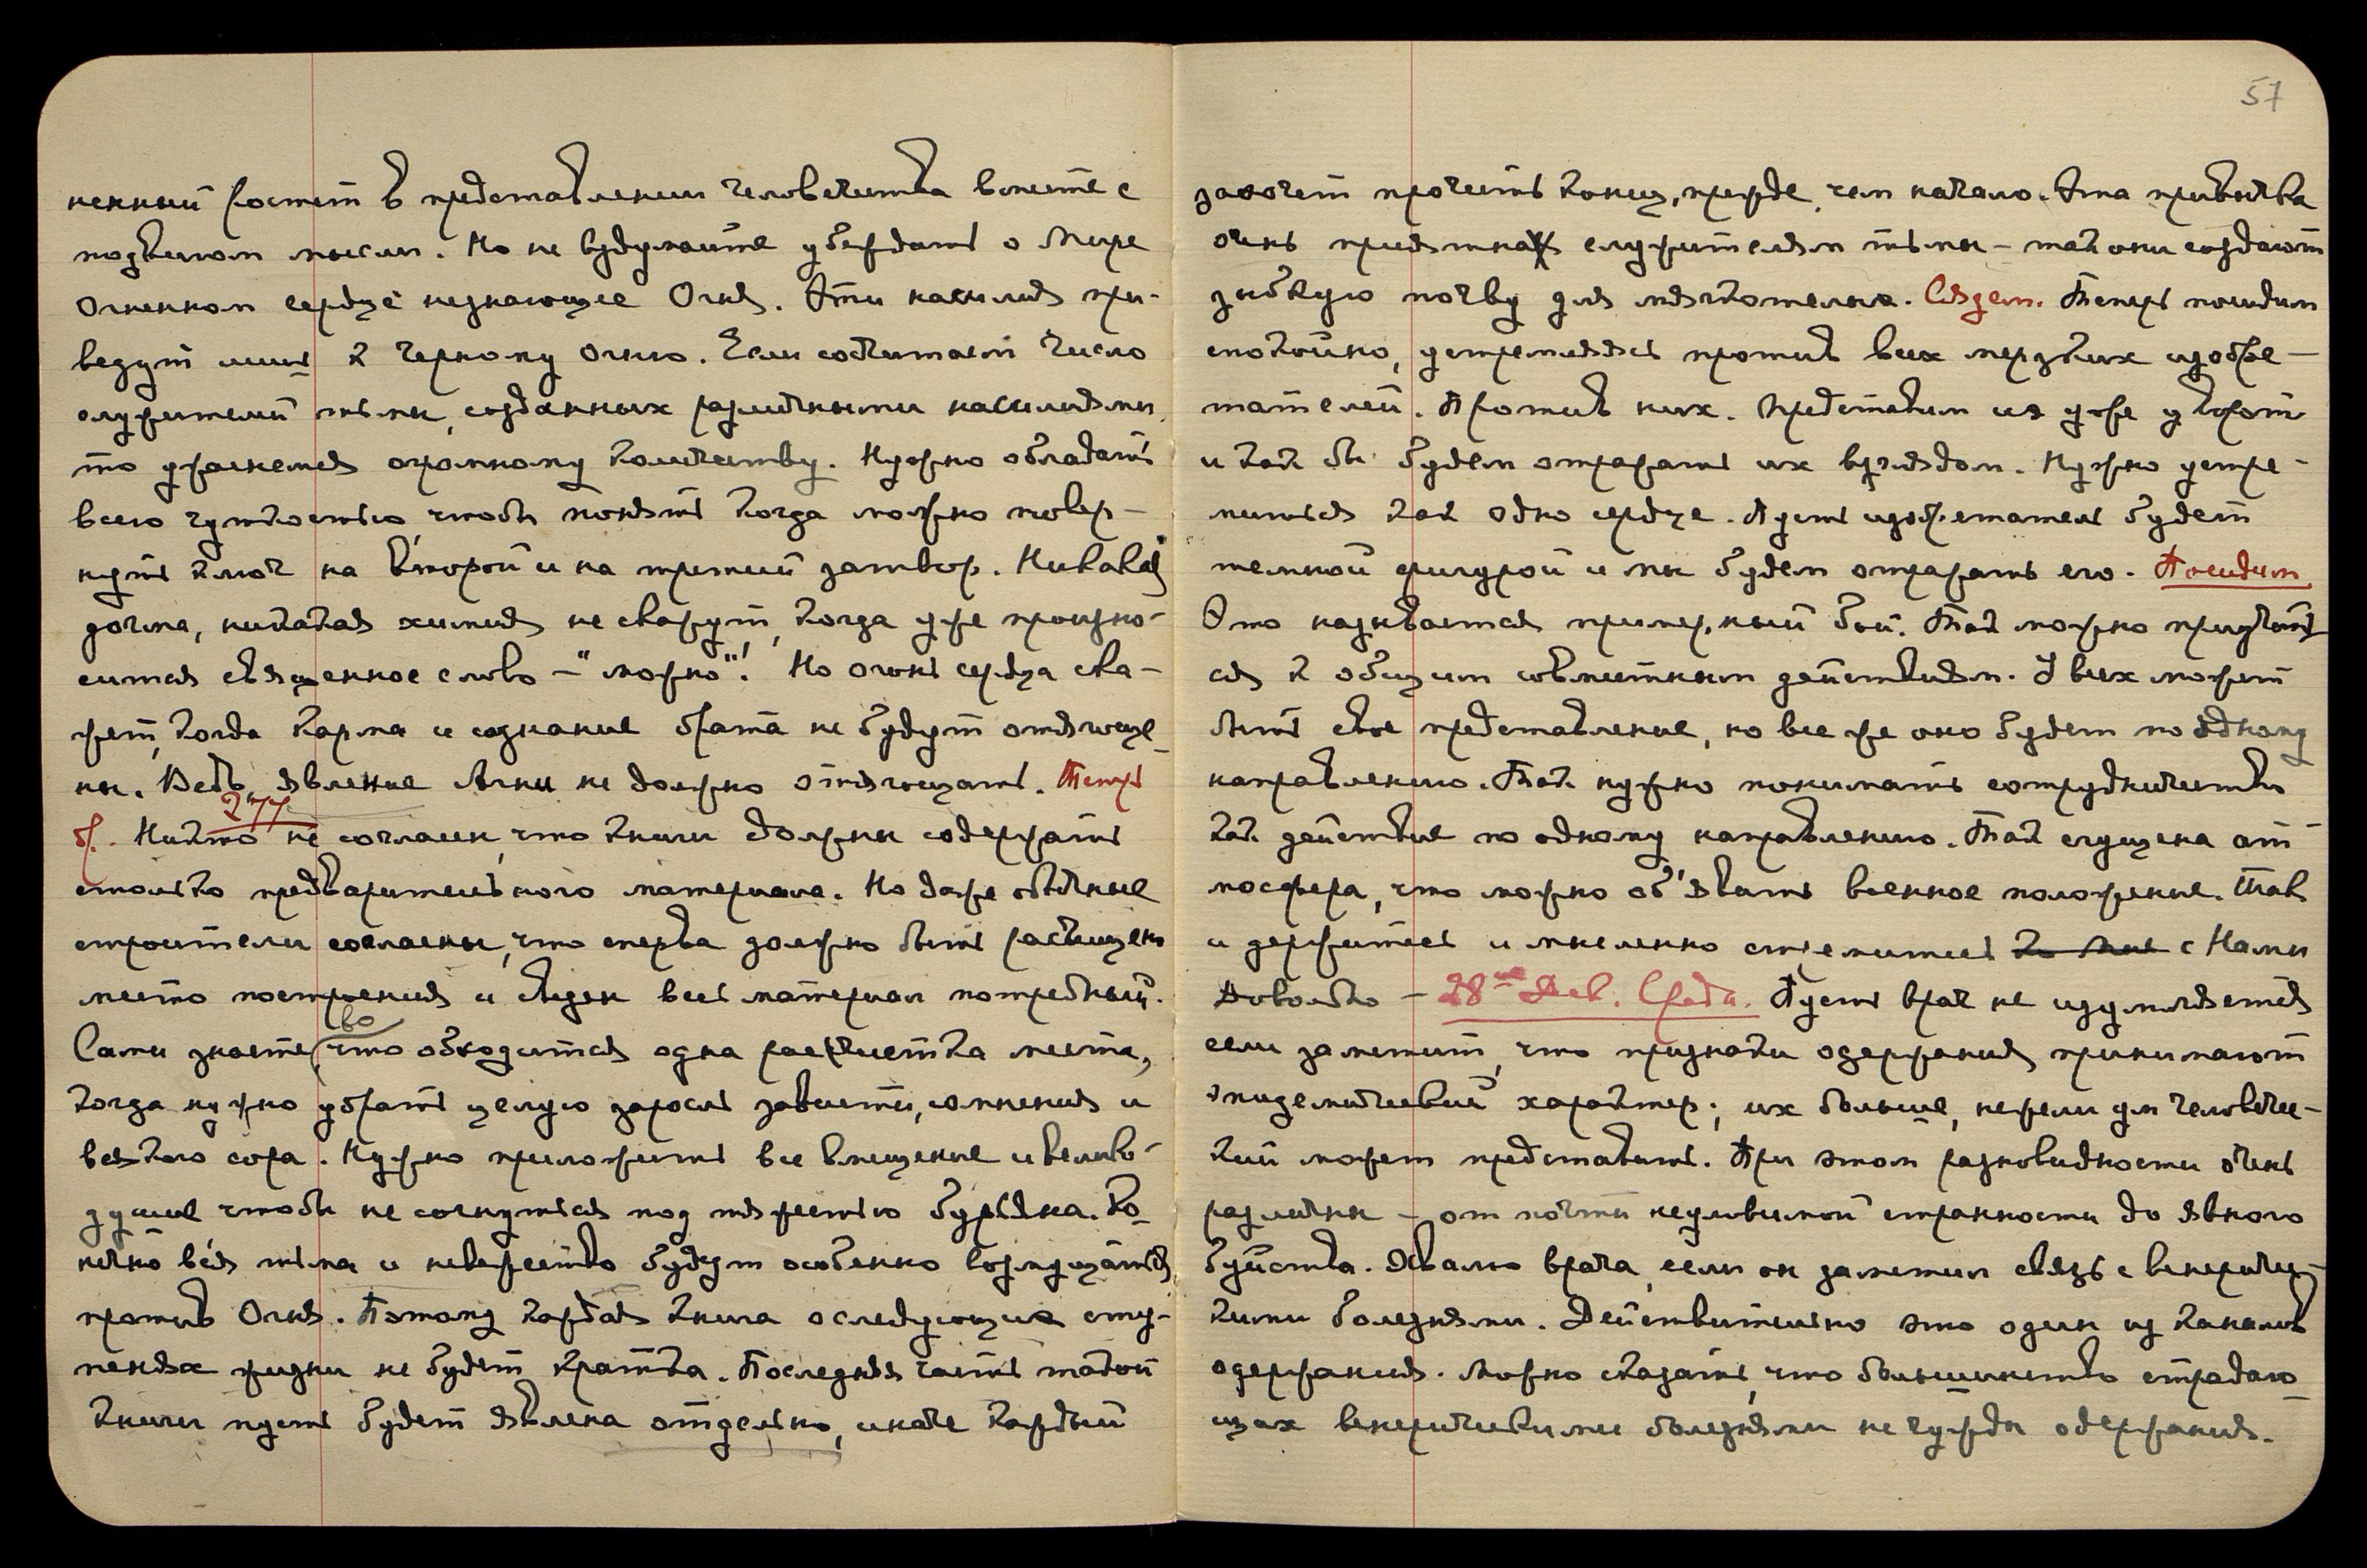 ненный ростет в представлении человечества вместе с
подвигом мысли. Но не вздумайте убеждать о Мире
Огненном сердце незнающее Огня. Эти насилия при-
ведут лишь к Черному Огню. Если сосчитаем число
служителей тьмы, созданных различными насилиями,
то ужаснемся огромному количеству. Нужно обладать
всею чуткостью чтобы понять когда можно повер-
нуть ключ на второй и на третий затвор. Никакая
догма, никакая химия не скажут, когда уже произно-
сится священное слово – "можно"! Но огонь сердца ска-
жет, когда карма и сознание брата не будут отягоще-
ны. Ведь явление Агни не должно отягощать. Теперь
277
б. Никто не согласен, что книги должны содержать
столько предварительного материала. Но даже обычные
строители согласны, что сперва должно быть расчищено
место построения и свезен весь материал потребный.
во
Сами знаете, что обходится одна расчистка места,
когда нужно убрать целую заросль зависти, сомнения и
всякого сора. Нужно приложить все вмещение и велико-
душие чтобы не согнуться под тяжестью бурьяна. Ко-
нечно вся тьма и невежество будут особенно возмущаться
против Огня. Потому каждая книга о следующих сту-
пенях жизни не будет кратка. Последняя часть такой
книги пусть будет явлена отдельно, иначе каждый
57
захочет прочесть конец, прежде, чем начало. Эта привычка
очень приятна служителям тьмы – так они создают
зыбкую почву для мягкотелых. Сядем. Теперь посидим
спокойно, устремляясь против всех мерзких изобре-
тателей. Против них. Представим их уже у ворот
и как бы будем отражать их взглядом. Нужно устре-
миться как одно сердце. Пусть изобретатель будет
темной фигурой и мы будем отражать его. Посидим.
Это называется примерный бой. Так можно приучать-
ся к общим совместным действиям. У всех может
быть свое представление, но все же оно будет по одному
направлению. Так нужно понимать сотрудничество
как действие по одному направлению. Так сгущена ат-
мосфера, что можно об'явить военное положение. Так
и держитесь и мысленно стремитесь ко Мне с Нами
Довольно – 28ое Дек. Среда. Пусть врач не изумляется
если заметит, что признаки одержания принимают
эпидемический характер; их больше, нежели ум человече-
кий может представить. При этом разновидности очень
различны – от почти неуловимой странности до явного
буйства. Хвалю врача, если он заметил связь с венериче-
кими болезнями. Действительно это один из каналов
одержания. Можно сказать, что большинство страдаю-
щих венерическими болезнями не чужды одержания.